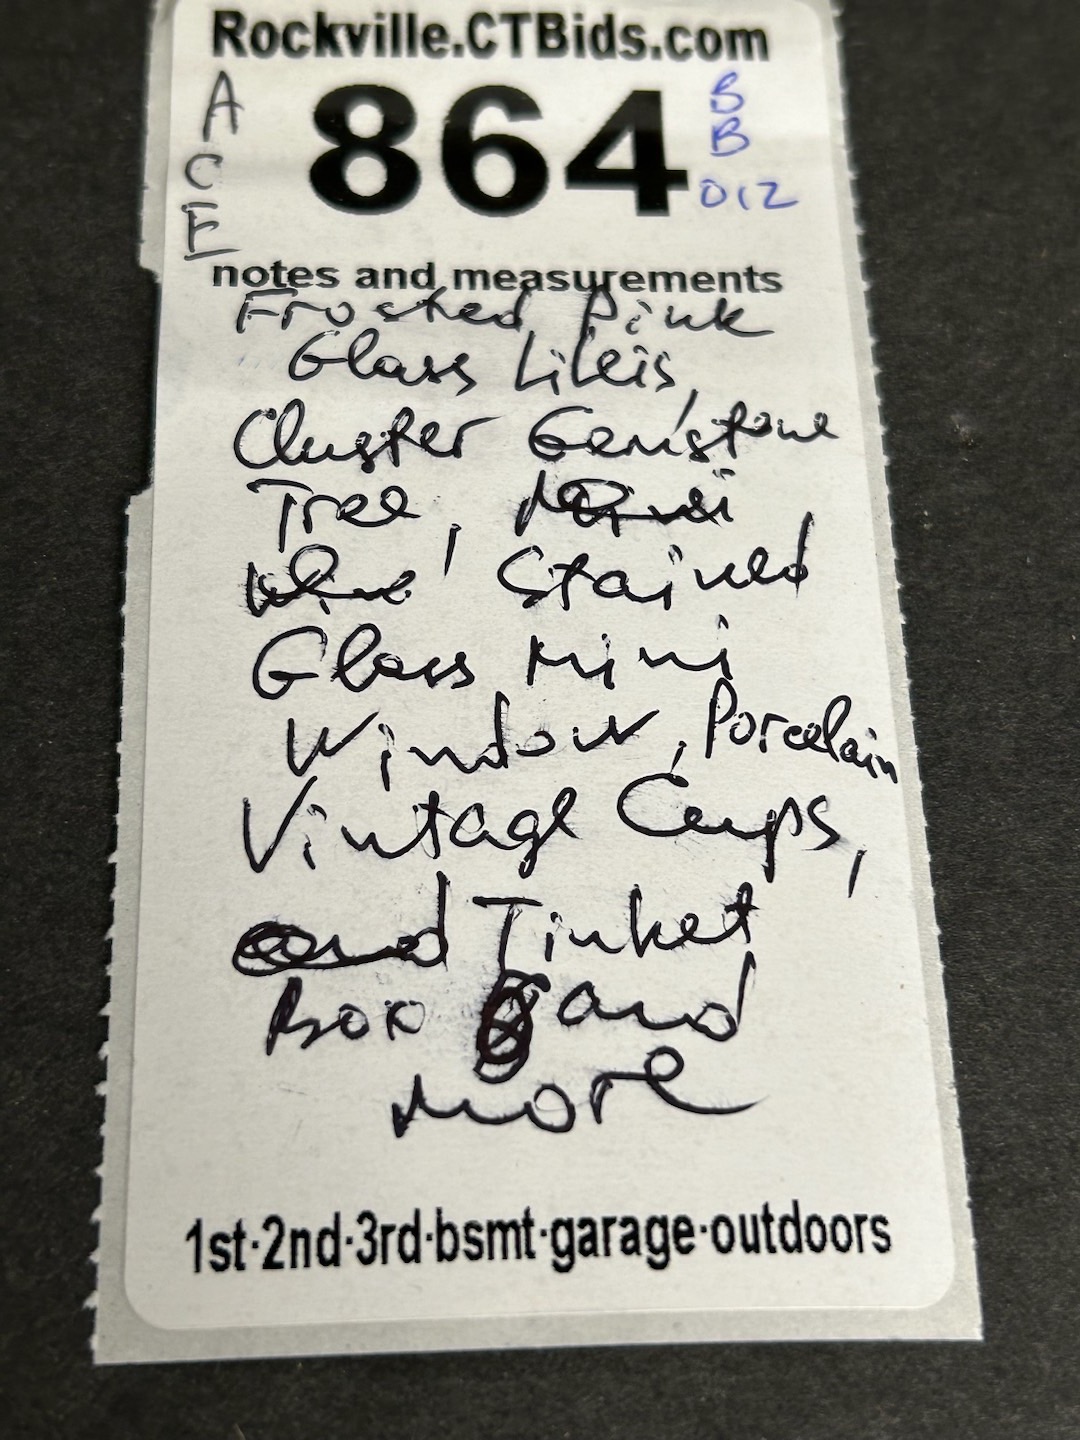 Rockville.CTBids.com
A
C
E
864
B
B
012
notes and measurements
Frosted Pink
Glass Lileis,
Cluster Gemstone
Tree,
Stained
Glass Mini
Window, Porcelain
Vintage Cups,
and Tinket
Box and
More
1st·2nd·3rd·bsmt·garage·outdoors